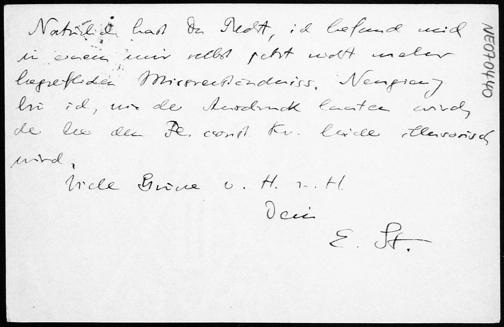 Natürlich hast Du Recht, ich befand mich
in einem mir selbst jetzt nicht mehr
begreiflichen Missverständniss. Neugierig
bin ich, wie der Ausdruck lauten wird,
der bei den const leider illusorisch
wird.
Viele Grüsse v. H. z. H.
Dein
E. St.
NE070440